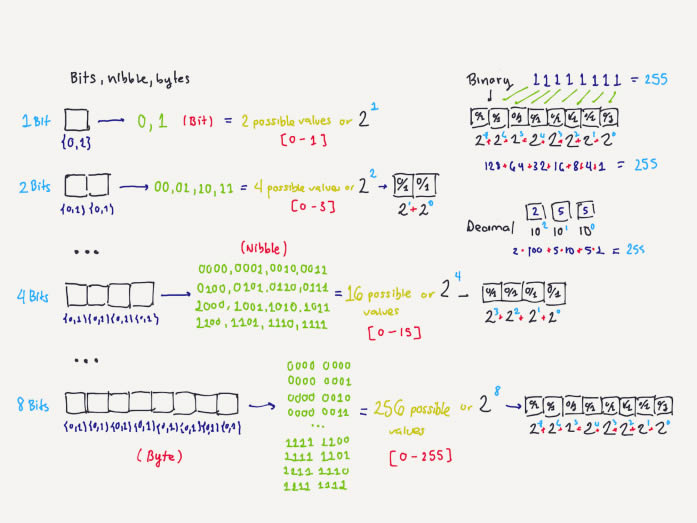 Bits, nibble, bytes
1 Bit
{0,1}
0, 1 (Bit) = 2 possible values or 2^1
[0-1]
2 Bits
{0,1} {0,1}
00,01,10,11 = 4 possible values or 2^2
[0-3]
0/1 0/1
2^1+2^0
...
4 Bits
{0,1}{0,1}{0,1}{0,1}
(Nibble)
0000,0001,0010,0011
0100,0101,0110,0111
1000,1001,1010,1011
1100,1101,1110,1111
= 16 possible or 2^4
values
[0-15]
0/1 0/1 0/1 0/1
2^3+2^2+2^1+2^0
...
8 Bits
{0,1}{0,1}{0,1}{0,1}{0,1}{0,1}{0,1}{0,1}
(Byte)
0000 0000
0000 0001
0000 0010
0000 0011
...
1111 1100
1111 1101
1111 1110
1111 1111
= 256 possible or 2^8
values
[0-255]
0/1 0/1 0/1 0/1 0/1 0/1 0/1 0/1
2^7+2^6+2^5+2^4+2^3+2^2+2^1+2^0
Binary 11111111 = 255
0/1 0/1 0/1 0/1 0/1 0/1 0/1 0/1
2^7+2^6+2^5+2^4+2^3+2^2+2^1+2^0
128+64+32+16+8+4+1 = 255
2 5 5
Decimal 10^2 10^1 10^0
2·100+5·10+5·1 = 255